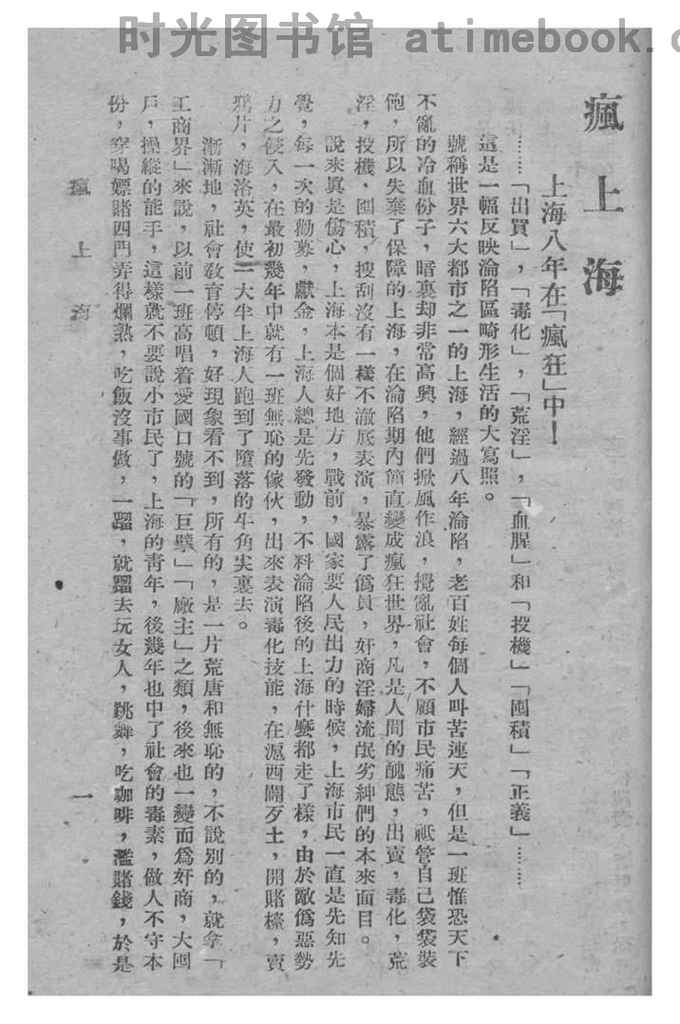 时光图书馆 atimebook.c
瘋上海
上海八年在「瘋狂」中！
……「出賣」，「毒化」，「荒淫」，「血腥」和「投機」「囤積」「正義」……
這是一幅反映淪陷區畸形生活的大寫照。
號稱世界六大都市之一的上海，經過八年淪陷，老百姓每個人叫苦連天，但是一班惟恐天下
不亂的冷血份子，暗裏却非常高興，他們掀風作浪，攪亂社會，不顧市民痛苦，祇管自己袋袋裝
飽，所以失棄了保障的上海，在淪陷期內簡直變成瘋狂世界，凡是人間的醜態，出賣，毒化，荒
淫，投機，囤積，搜刮沒有一樣不澈底表演，暴露了僞員，奸商淫婦流氓劣紳們的本來面目。
說來眞是傷心，上海本是個好地方，戰前，國家要人民出力的時候，上海市民一直是先知先
覺，每一次的勸募，獻金，上海人總是先發動，不料淪陷後的上海什麼都走了樣，由於敵僞惡勢
力之侵入，在最初幾年中就有一班無恥的傢伙，出來表演毒化技能，在滬西闢歹土，開賭檯，賣
鴉片，海洛英，使一大半上海人跑到了墮落的牛角尖裏去。
漸漸地，社會敎育停頓，好現象看不到，所有的，是一片荒唐和無恥的，不說別的，就拿「
工商界」來說，以前一班高唱着愛國口號的「巨擘」「廠主」之類，後來也一變而爲奸商，大囤
戶，操縱的能手，這樣就不要說小市民了，上海的靑年，後幾年也中了社會的毒素，做人不守本
份，穿喝嫖賭四門弄得爛熟，吃飯沒事做，一蹓，就蹓去玩女人，跳舞，吃咖啡，濫賭錢，於是
瘋上海
一